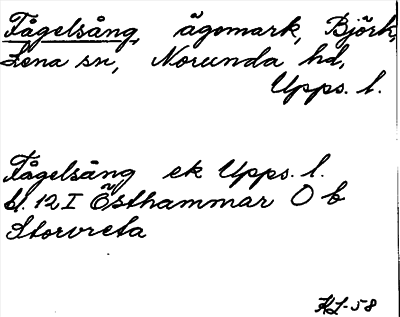 Fågelsång, ägomark, Björk,
Lena sn, Norunda hd,
Upps. l.
Fågelsång ek Upps. l.
bl. 12 I Östhammar O b
Storvreta
HL-58